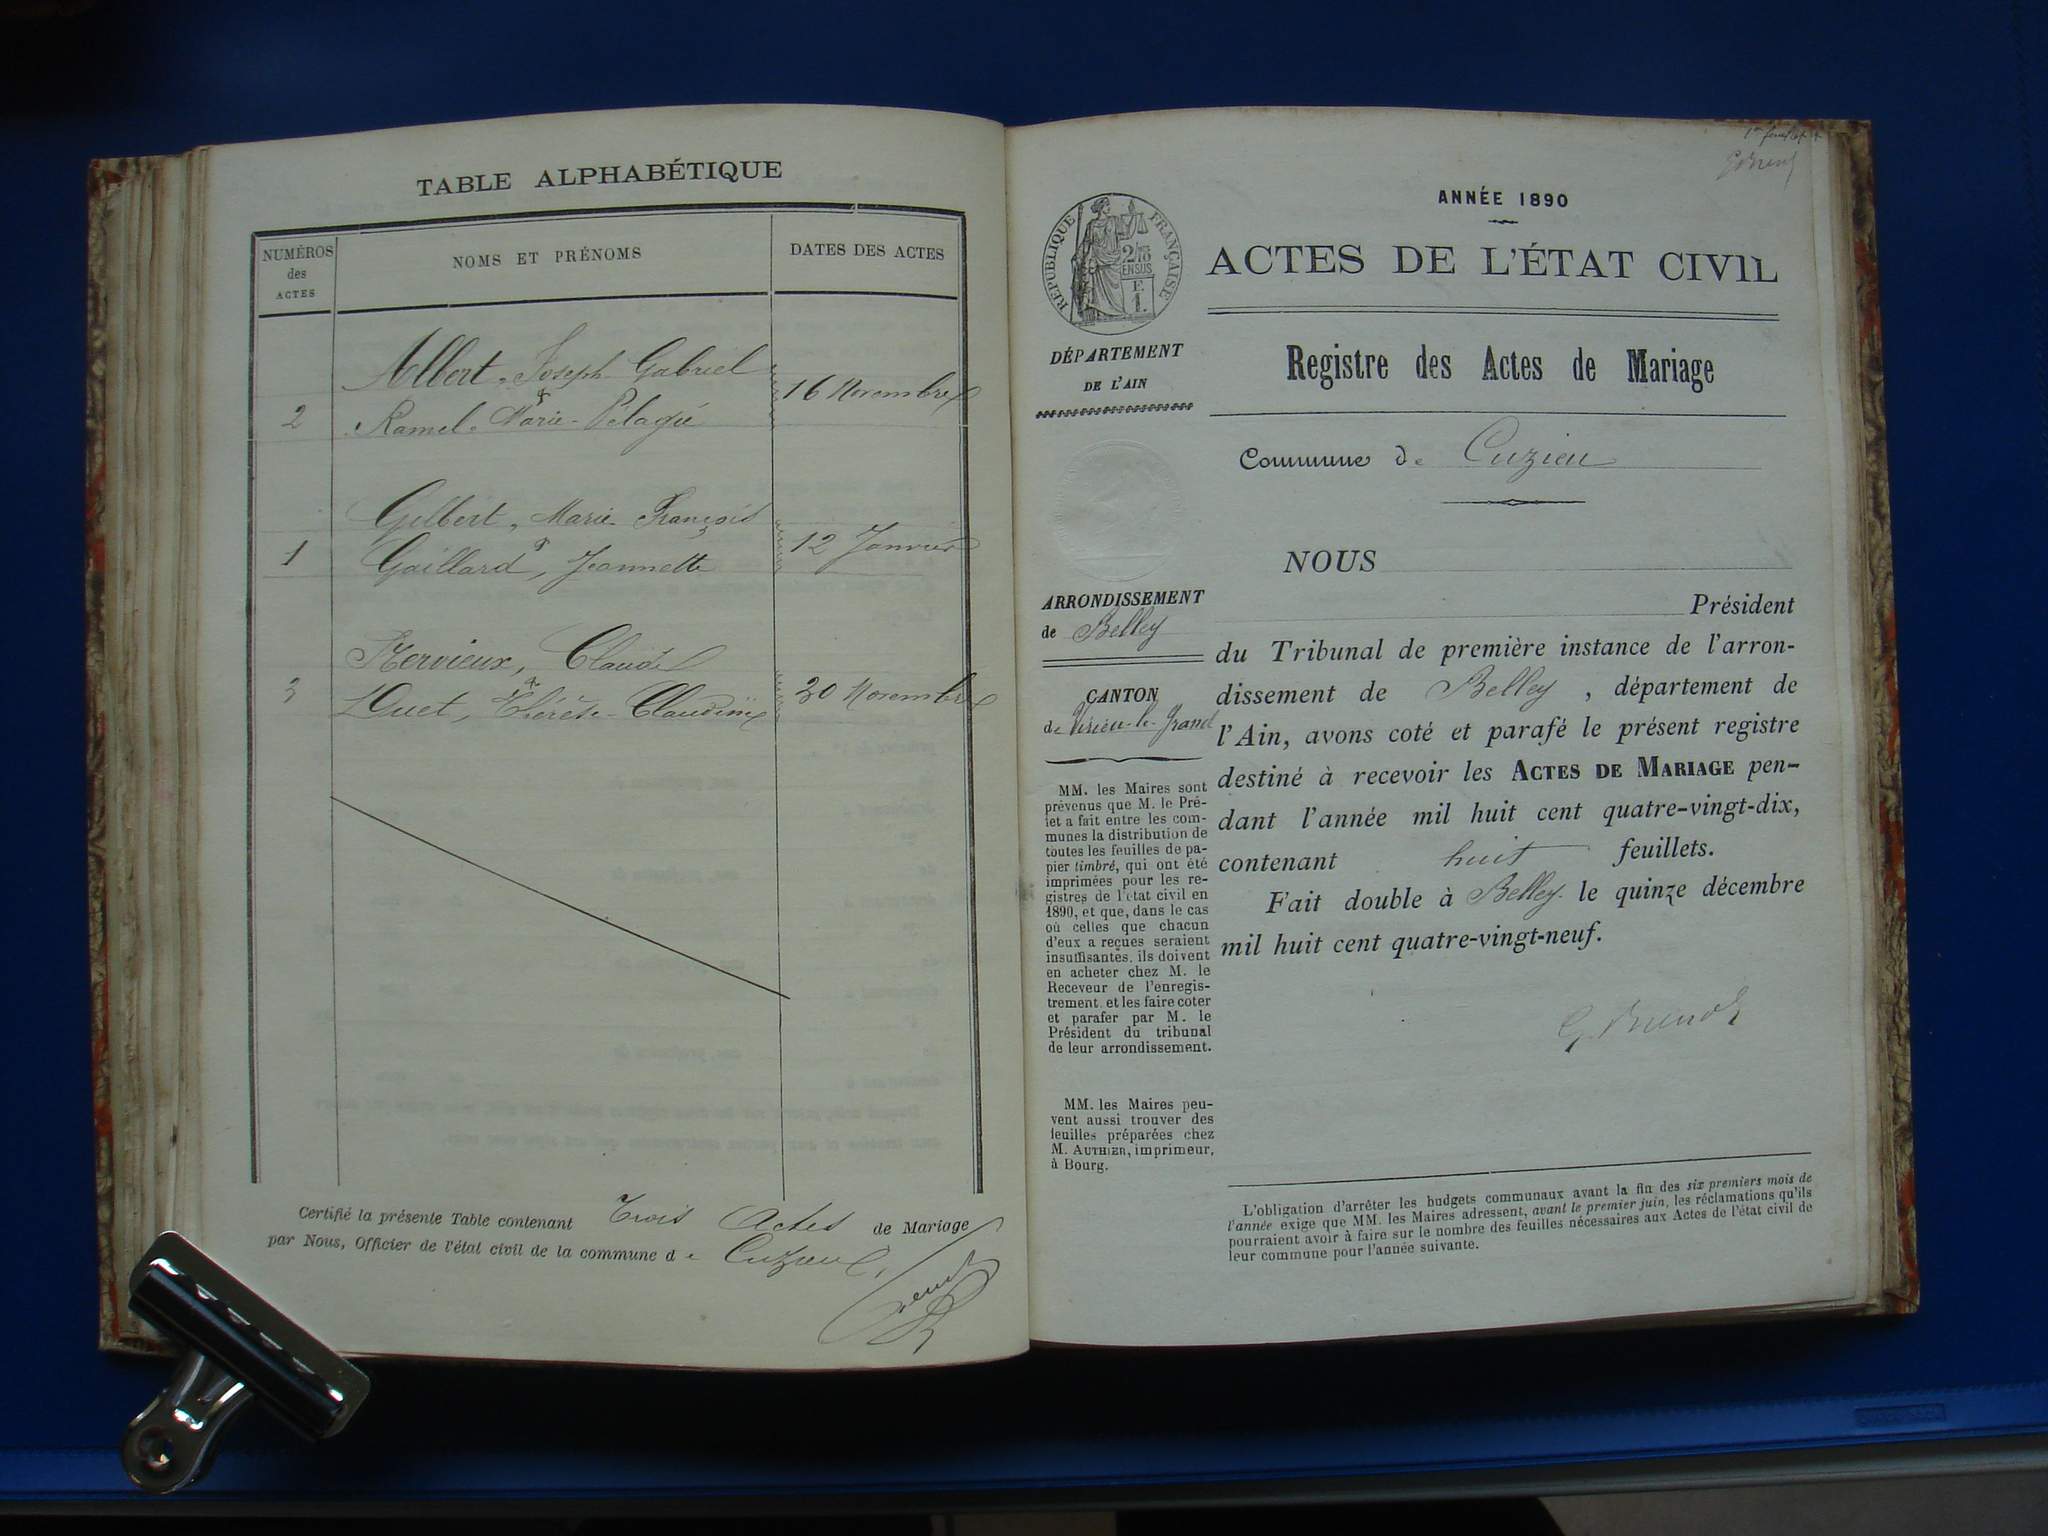 TABLE ALPHABÉTIQUE
NUMÉROS des ACTES
NOMS ET PRÉNOMS
DATES DES ACTES
Albert, Joseph Gabriel
&
2 Ramel, Marie-Pélagie 16 Novembre
Gilbert, Marie-François
&
1 Gaillard, Jeannette 12 Janvier
Hervieux, Claude
&
3 Duet, Thérèse-Claudine 30 Novembre
Certifié la présente Table contenant Trois Actes de Mariage
par Nous, Officier de l'état civil de la commune de Cuzieu,
ANNÉE 1890
ACTES DE L'ÉTAT CIVIL
RÉPUBLIQUE FRANÇAISE
2/10
EN SUS
E
1.
DÉPARTEMENT
DE L'AIN
Registre des Actes de Mariage
Commune de Cuzieu
ARRONDISSEMENT
de Belley
CANTON
de Virieu-le-Grand
MM. les Maires sont
prévenus que M. le Pré-
fet a fait entre les com-
munes la distribution de
toutes les feuilles de pa-
pier timbré, qui ont été
imprimées pour les re-
gistres de l'état civil en
1890, et que, dans le cas
où celles que chacun
d'eux a reçues seraient
insuffisantes, ils doivent
en acheter chez M. le
Receveur de l'enregis-
trement et les faire coter
et parafer par M. le
Président du tribunal
de leur arrondissement.
MM. les Maires peu-
vent aussi trouver des
feuilles préparées chez
M. AUTHIER, imprimeur,
à Bourg.
NOUS
Président
du Tribunal de première instance de l'arron-
dissement de Belley, département de
l'Ain, avons coté et parafé le présent registre
destiné à recevoir les ACTES DE MARIAGE pen-
dant l'année mil huit cent quatre-vingt-dix,
contenant huit feuillets.
Fait double à Belley le quinze décembre
mil huit cent quatre-vingt-neuf.
L'obligation d'arrêter les budgets communaux avant la fin des six premiers mois de
l'année exige que MM. les Maires adressent, avant le premier juin, les réclamations qu'ils
pourraient avoir à faire sur le nombre des feuilles nécessaires aux Actes de l'état civil de
leur commune pour l'année suivante.